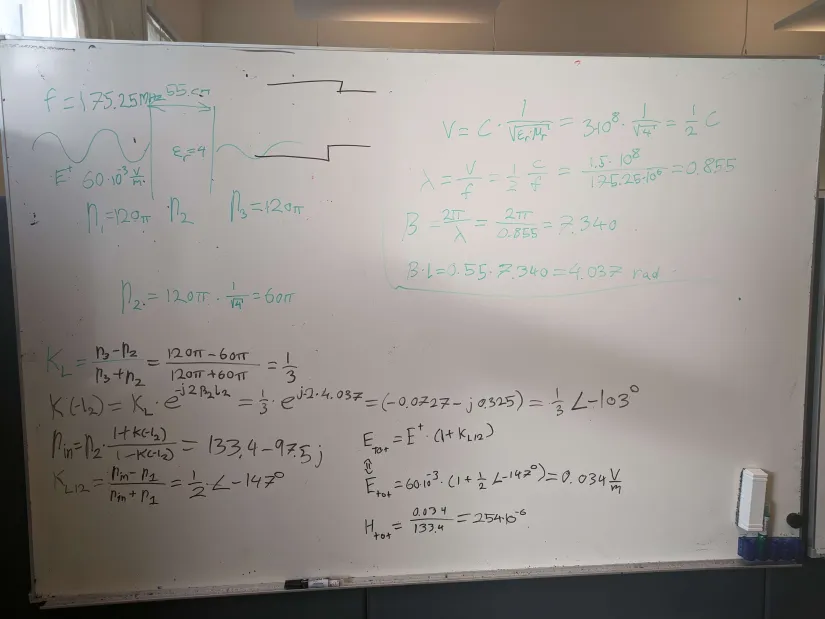 f = 175.25MHz 55 cm
εr = 4
E⁺ 60·10³ V/m
η₁ = 120π η₂ η₃ = 120π
η₂ = 120π · 1/√4 = 60π
V = C · 1/√(εr·μr) = 3·10⁸ · 1/√4 = 1/2 C
λ = V/f = 1/2 C/f = 1.5·10⁸/175.25·10⁶ = 0.855
B = 2π/λ = 2π/0.855 = 7.340
B·l = 0.55 · 7.340 = 4.037 rad
K_L = (η₃ − η₂)/(η₃ + η₂) = (120π − 60π)/(120π + 60π) = 1/3
K(-l₂) = K_L · e^(-j2β₂l₂) = 1/3 · e^(j-2·4.037) = (-0.0727 − j0.325) = 1/3 ∠-103°
η_in = η₂ · (1 + K(-l₂))/(1 − K(-l₂)) = 133.4 − 97.5j
K_L12 = (η_in − η₁)/(η_in + η₁) = 1/2 · ∠-147°
E_tot = E⁺ · (1 + K_L12)
⇕
E_tot = 60·10⁻³ · (1 + 1/2 ∠-147°) = 0.034 V/m
H_tot = 0.034/133.4 = 254·10⁻⁶